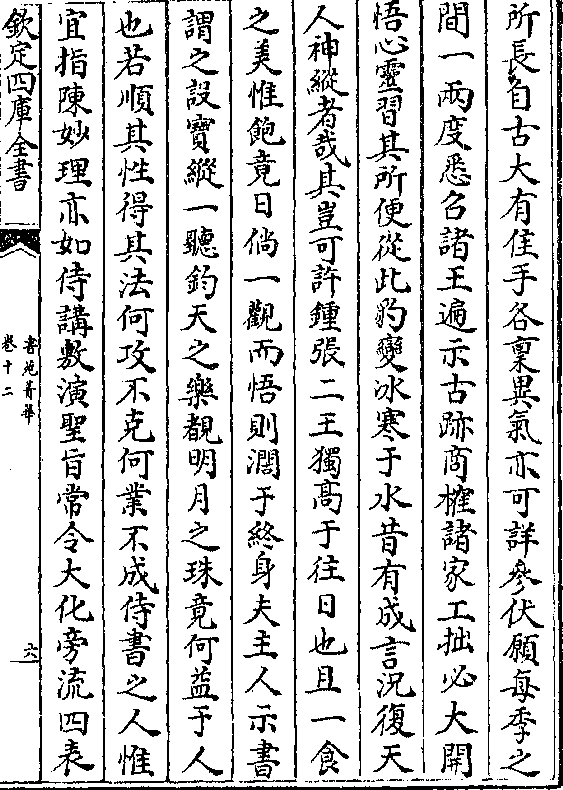 所長自古大有佳手各稟異氣亦可詳參伏願每季之
間一兩度悉召諸王遍示古跡商榷諸家工拙必大開
悟心靈習其所便從此豹變冰寒于水昔有成言況復天
人神縱者哉其豈可許鍾張二王獨高于往日也且一食
之美惟飽竟日倘一觀而悟則潤于終身夫主人示書
謂之設寶縱一聽鈞天之樂覩明月之珠竟何益于人
也若順其性得其法何攻不克何業不成侍書之人惟
宜指陳妙理亦如侍講敷演聖旨常令大化旁流四表
欽定四庫全書
書苑菁華
卷十二
六